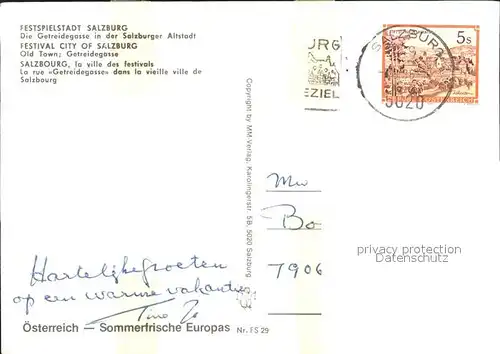 FESTSPIELSTADT SALZBURG
Die Getreidegasse in der Salzburger Altstadt
FESTIVAL CITY OF SALZBURG
Old Town; Getreidegasse
SALZBOURG, la ville des festivals
La rue «Getreidegasse» dans la vieille ville de
Salzbourg
URG
EZIEL
SALZBURG
5020
5s
REPUBLIK ÖSTERREICH
Copyright by MM-Verlag, Karolingerstr. 5B, 5020 Salzburg
Mw
Bo
7906
privacy protection
Datenschutz
Hartelijke groeten
op een warme vakantie
Tino
Österreich — Sommerfrische Europas Nr. FS 29